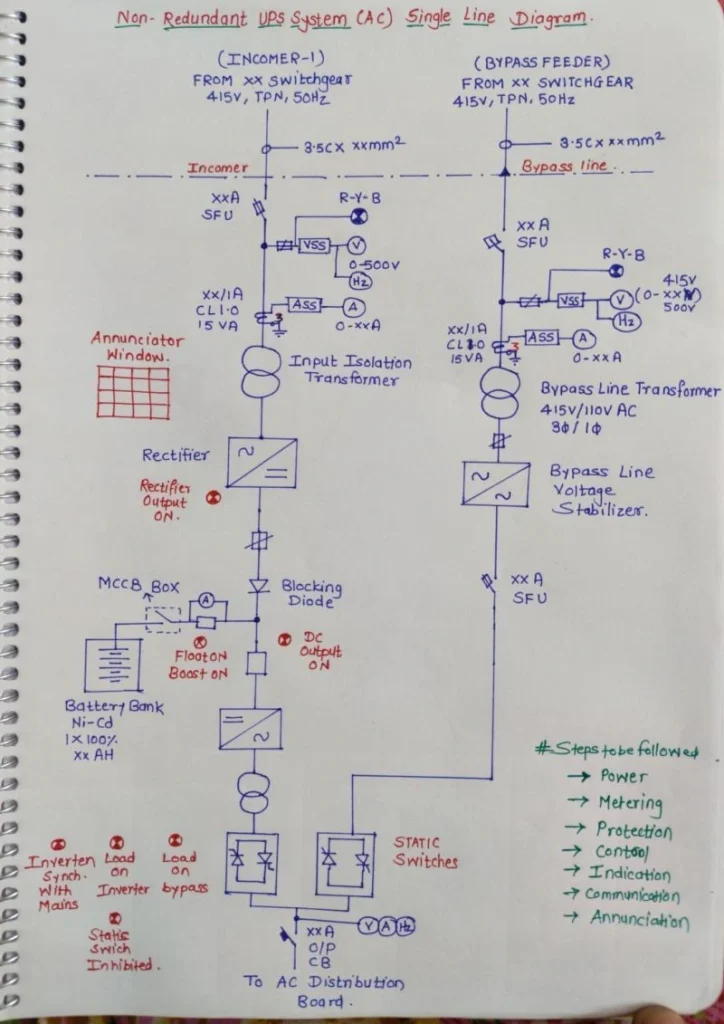 Non-Redundant UPS System (AC) Single Line Diagram.
(INCOMER-1)
FROM XX Switchgear
415V, TPN, 50Hz
(BYPASS FEEDER)
FROM XX SWITCHGEAR
415V, TPN, 50Hz
3.5CX xxmm²
3.5CX xxmm²
Incomer
Bypass line.
XXA
SFU
R-Y-B
VSS
V
0-500V
Hz
XX/1A
CL1.0
15VA
3
ASS
A
0-XXA
Input Isolation
Transformer
XXA
SFU
R-Y-B
VSS
V
415V
(0-XXV)
500V
Hz
XX/1A
CL1.0
15VA
3
ASS
A
0-XXA
Bypass Line Transformer
415V/110V AC
3Φ/1Φ
Annunciator
Window.
Rectifier
Rectifier
Output
ON.
Bypass Line
Voltage
Stabilizer.
XXA
SFU
Blocking
Diode
MCCB Box
A
Float ON
Boost ON
DC
Output
ON
Battery Bank
Ni-Cd
1X100%
XX AH
#Steps to be followed
→ Power
→ Metering
→ Protection
→ Control
→ Indication
→ Communication
→ Annunciation
STATIC
Switches
Inverten
Synch.
With
Mains
Load
on
Inverter
Load
on
bypass
Static
Swich
Inhibited.
V A Hz
XXA
O/P
CB
To AC Distribution
Board.